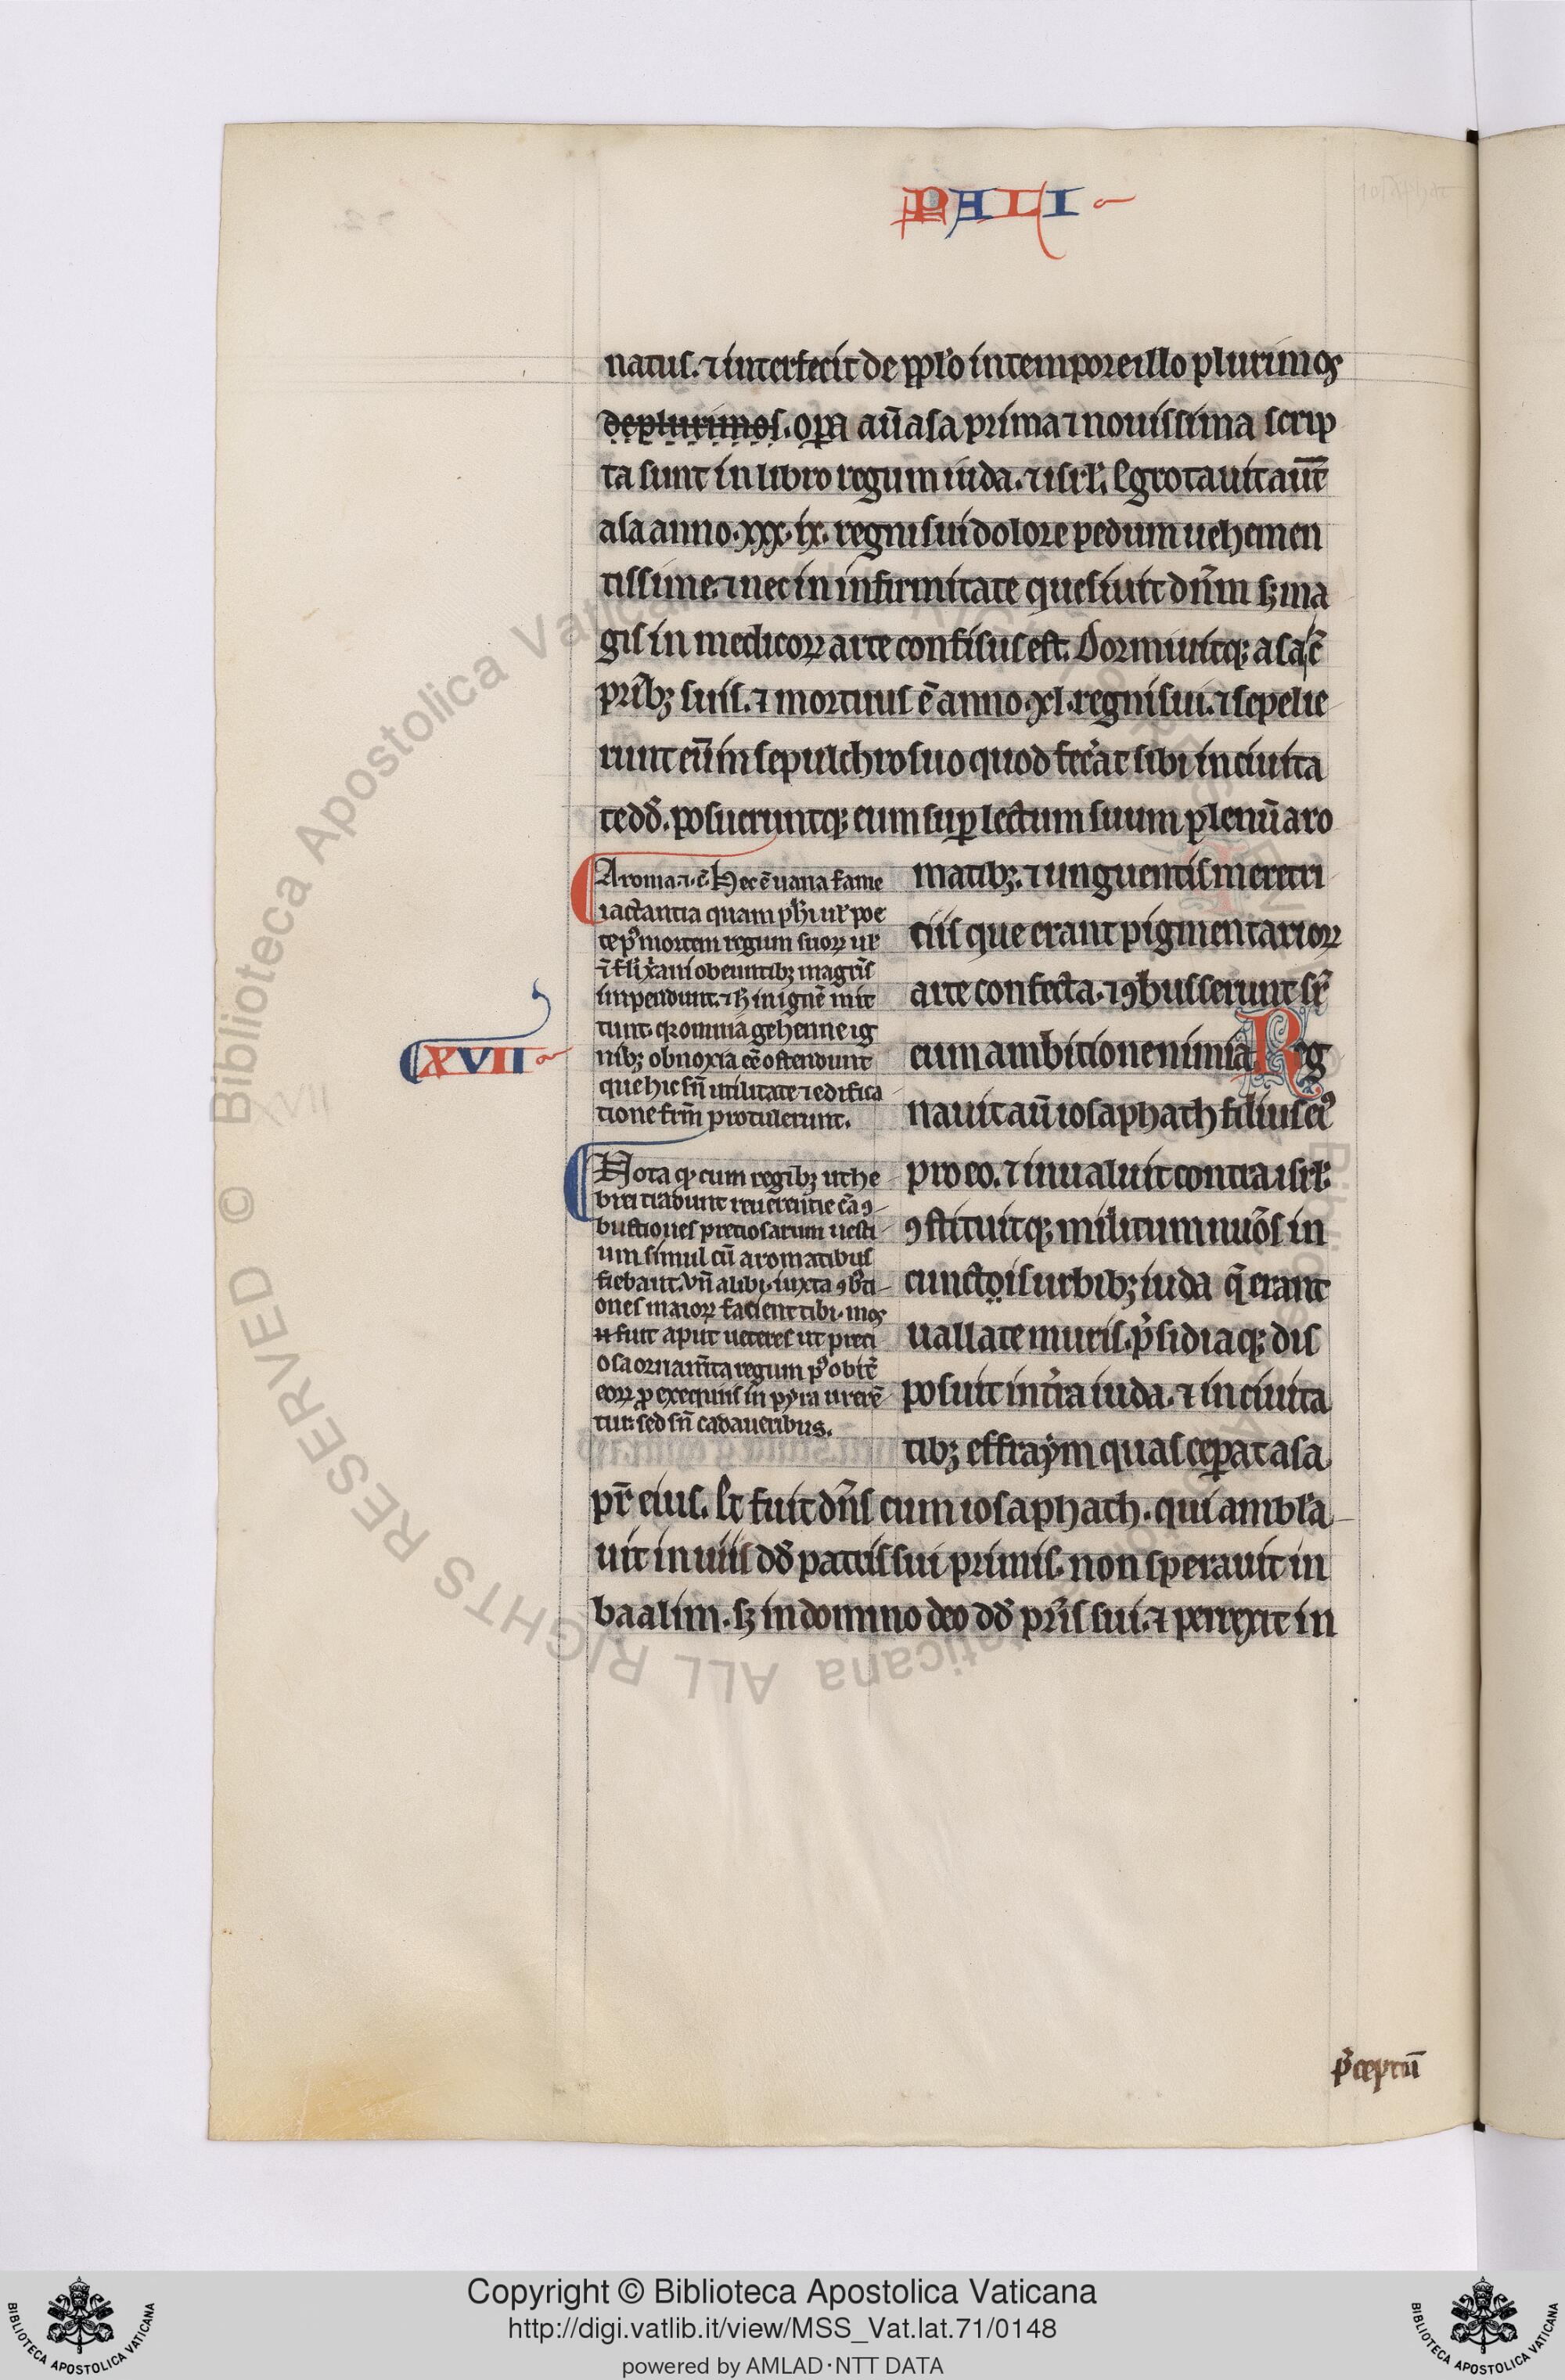 PALI
natus. ⁊ interfecit de pp̃lo in tempore illo plurimos
de plurimos. oꝑa aũ asa prima ⁊ nouissima scrip
ta sunt in libro regum iuda. ⁊ isrl̃. Egrotauit aut̃
asa anno. xxx. ix. regni sui dolore pedum uehemen
tissime. ⁊ nec in infirmitate quesiuit dñm sꝫ ma
gis in medicoꝝ arte confisus est. Dormiuitqꝫ asa c̃
pribꝫ suis. ⁊ mortuus ẽ anno. xl. regni sui. ⁊ sepelie
runt eũ in sepulchro suo quod fec̃at sibi in ciuita
te dd̃. posueruntqꝫ eum suꝑ lectum suum plenũ aro
matibꝫ. ⁊ unguentis meretri
ciis que erant pigmentarioꝝ
arte confecta. ⁊ ꝯbusserunt sr̃
eum ambitione nimia Reg
nauit aũ iosaphath filius eiꝰ
pro eo. ⁊ inualuit contra isrl̃.
ꝯstituitqꝫ militum nuõs in
cunctois urbibꝫ iuda q̃ erant
uallate muris. p̃sidiaqꝫ dis
posuit in tr̃a iuda. ⁊ in ciuita
tibꝫ effraym quas ceꝑat asa
pr̃ eius. Et fuit dñs cum iosaphath. qui ambla
uit in uiis dd̃ patris sui primis. non sperauit in
baalim. sꝫ in domino deo dd̃ pr̃is sui. ⁊ perrexit in
Aroma. ⁊. c̃. Hec ẽ uana fame
iactantia quam ph̃i ul̃ poe
te pꝰ mortem regum suoꝝ ul̃
impendunt. ⁊ sꝫ in ignẽ mit
tunt. qr omnia gehenne ig
nibꝫ obnoxia eẽ ostendunt
que hic sñ utilitate ⁊ edifica
tione frm̃ protulerunt.
XVII
Nota qꝫ cum regibꝫ ut he
brei tradunt reuerentie cã ꝯ
bustiones preciosarum uesti
um simul cũ aromatibus
fiebant. vñ alibi. iuxta ꝯbsti
ones maioꝝ facient tibi. mos
n fuit aput ueteres ut preci
osa ornam̃ta regum pꝰ obitũ
eoꝝ ꝓ exequiis in pyra urerẽ
tur. sed sñ cadaueribus.
p̃ceptũ
Copyright © Biblioteca Apostolica Vaticana
http://digi.vatlib.it/view/MSS_Vat.lat.71/0148
powered by AMLAD·NTT DATA
BIBLIOTECA APOSTOLICA VATICANA
BIBLIOTECA APOSTOLICA VATICANA
© Biblioteca Apostolica Vaticana ALL RIGHTS RESERVED